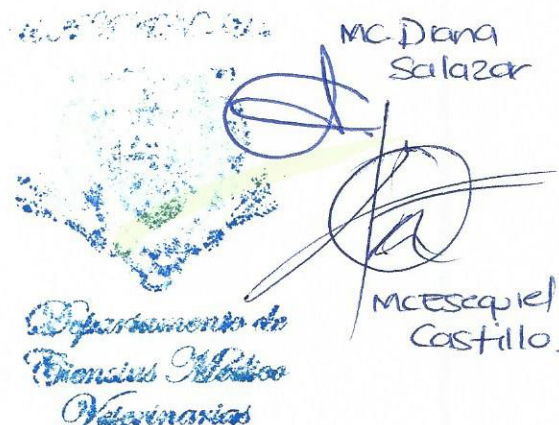 MC. Diana
Salazar
MC Esequiel
Castillo.
Departamento de
Ciencias Médico
Veterinarias